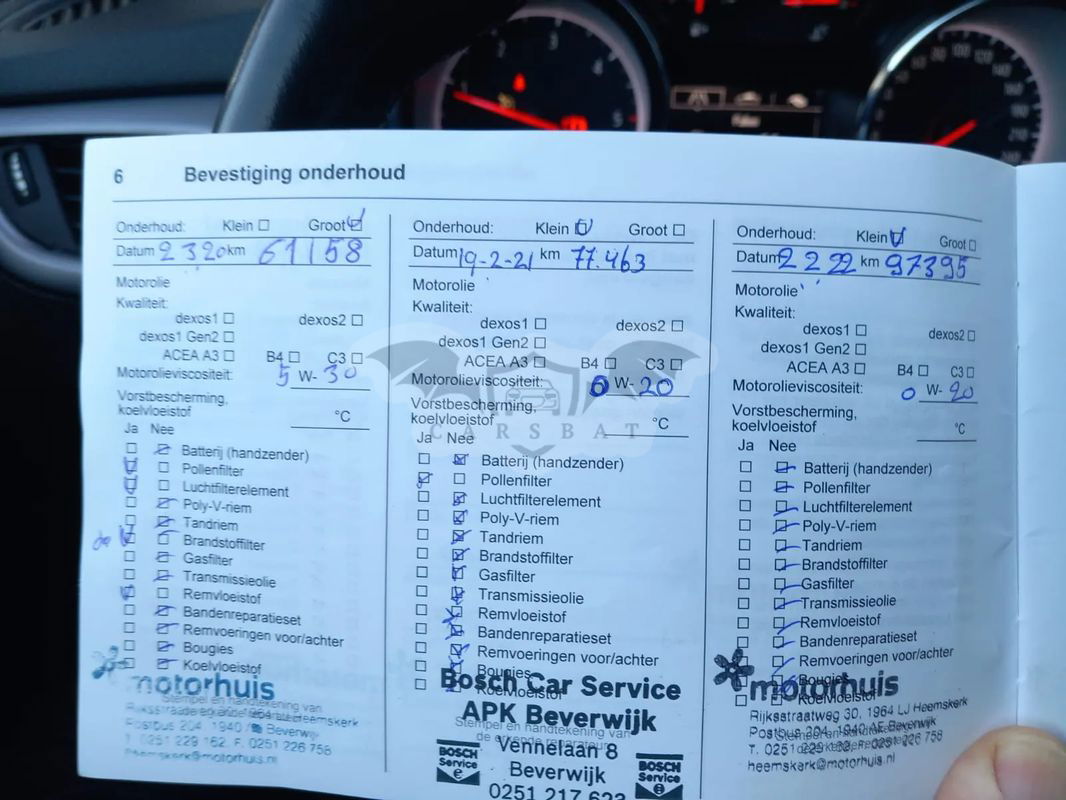 6 Bevestiging onderhoud
Onderhoud: Klein Groot
Datum 2 3 20 km 61158
Motorolie
Kwaliteit:
dexos1 dexos2
dexos1 Gen2
ACEA A3 B4 C3
Motorolieviscositeit: 5 W- 30
Vorstbescherming,
koelvloeistof °C
Ja Nee
Batterij (handzender)
Pollenfilter
Luchtfilterelement
Poly-V-riem
Tandriem
Brandstoffilter
Gasfilter
Transmissieolie
Remvloeistof
Bandenreparatieset
Remvoeringen voor/achter
Bougies
Koelvloeistof
motorhuis
Stempel en handtekening van
Postbus 204, 1940 Beverwijk
T. 0251 229 162, F. 0251 226 758
heemskerk@motorhuis.nl
Onderhoud: Klein Groot
Datum 19-2-21 km 77.463
Motorolie
Kwaliteit:
dexos1 dexos2
dexos1 Gen2
ACEA A3 B4 C3
Motorolieviscositeit: 0 W- 20
Vorstbescherming,
koelvloeistof °C
Ja Nee
Batterij (handzender)
Pollenfilter
Luchtfilterelement
Poly-V-riem
Tandriem
Brandstoffilter
Gasfilter
Transmissieolie
Remvloeistof
Bandenreparatieset
Remvoeringen voor/achter
Bougies
Koelvloeistof
Bosch Car Service
APK Beverwijk
Stempel en handtekening van
Vennelaan 8
Beverwijk
0251 217 623
BOSCH
Service
BOSCH
Service
Onderhoud: Klein Groot
Datum 2 2 22 km 97395
Motorolie
Kwaliteit:
dexos1 dexos2
dexos1 Gen2
ACEA A3 B4 C3
Motorolieviscositeit: 0 W- 20
Vorstbescherming,
koelvloeistof °C
Ja Nee
Batterij (handzender)
Pollenfilter
Luchtfilterelement
Poly-V-riem
Tandriem
Brandstoffilter
Gasfilter
Transmissieolie
Remvloeistof
Bandenreparatieset
Remvoeringen voor/achter
Bougies
Koelvloeistof
motorhuis
Rijksstraatweg 30, 1964 LJ Heemskerk
Postbus 204, 1940 AE Beverwijk
T. 0251 229 162, F. 0251 226 758
heemskerk@motorhuis.nl
CARSBAT